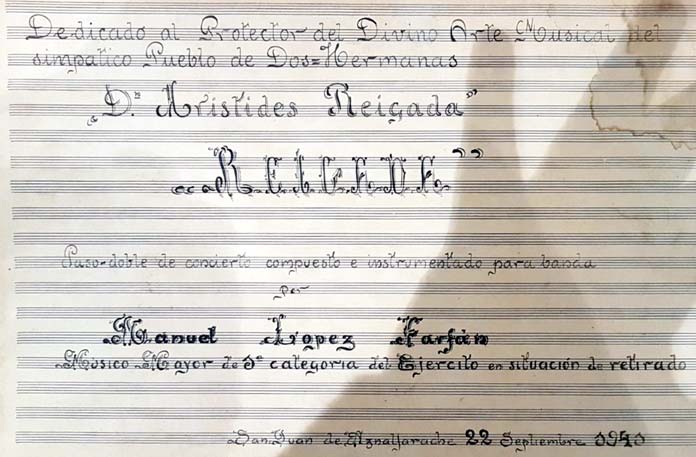 Dedicado al Protector del Divino Arte Musical del
simpatico Pueblo de Dos=Hermanas
"Dn Aristides Reigada"
"R.E.I.G.A.D.A."
Paso-doble de concierto compuesto e instrumentado para banda
por
Manuel Lopez Farfán
Músico Mayor de 3ª categoria del Ejercito en situación de retirado
San Juan de Aznalfarache 22 Septiembre 1940